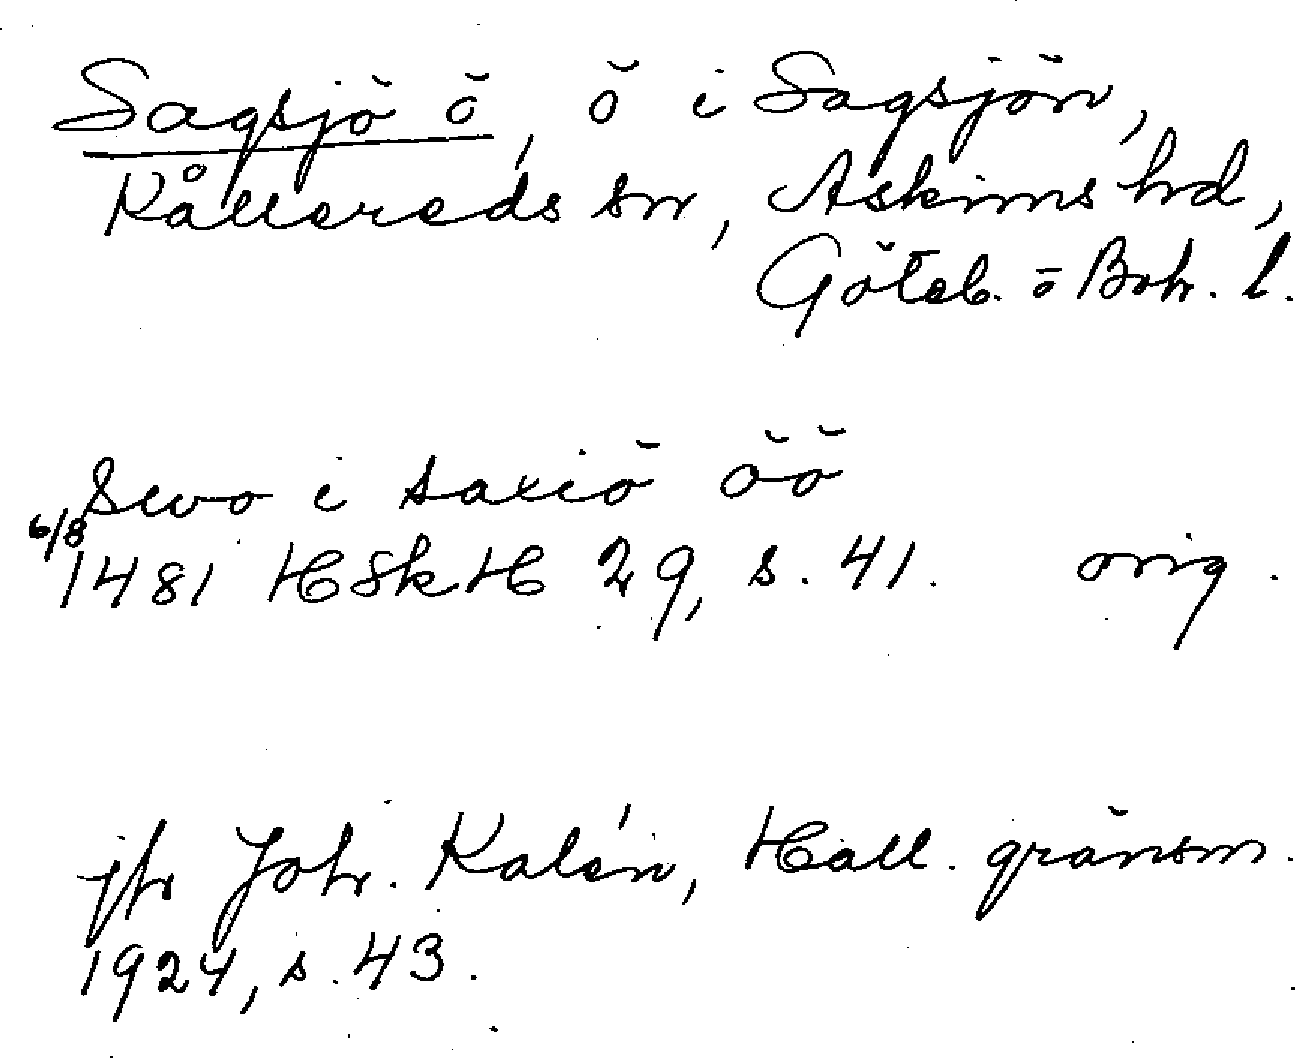 Sagsjö ö, ö i Sagsjön,
Kållereds sn, Askims hd,
Göteb. o Boh. l.
Swo i saxiö öö
6/8
1481 HSkH 29, s. 41. orig.
jfr Joh. Kalén, Hall. gränsm.
1924, s. 43.